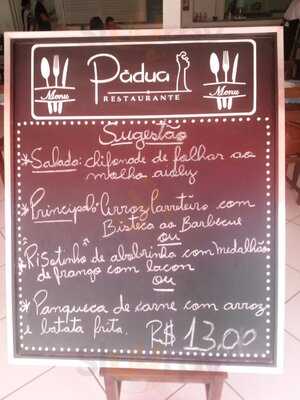 Pādua
RESTAURANTE
Menu
Menu
Sugestão
* Salada: chifonade de folhas ao
molho
* Principal: Arroz Carreteiro com
Bisteca ao Barbecue
ou
"Risotinho" de abobrinha com medalhão
de frango com bacon
ou
* Panqueca de carne com arroz
e batata frita. R$ 13,00